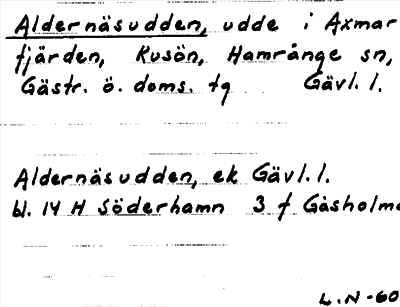 Aldernäsudden, udde i Axmar
fjärden, Kusön, Hamrånge sn,
Gästr. ö. doms. tg Gävl. l.
Aldernäsudden, ek Gävl. l.
bl. 14 H Söderhamn 3 f Gåsholma
L. N -60